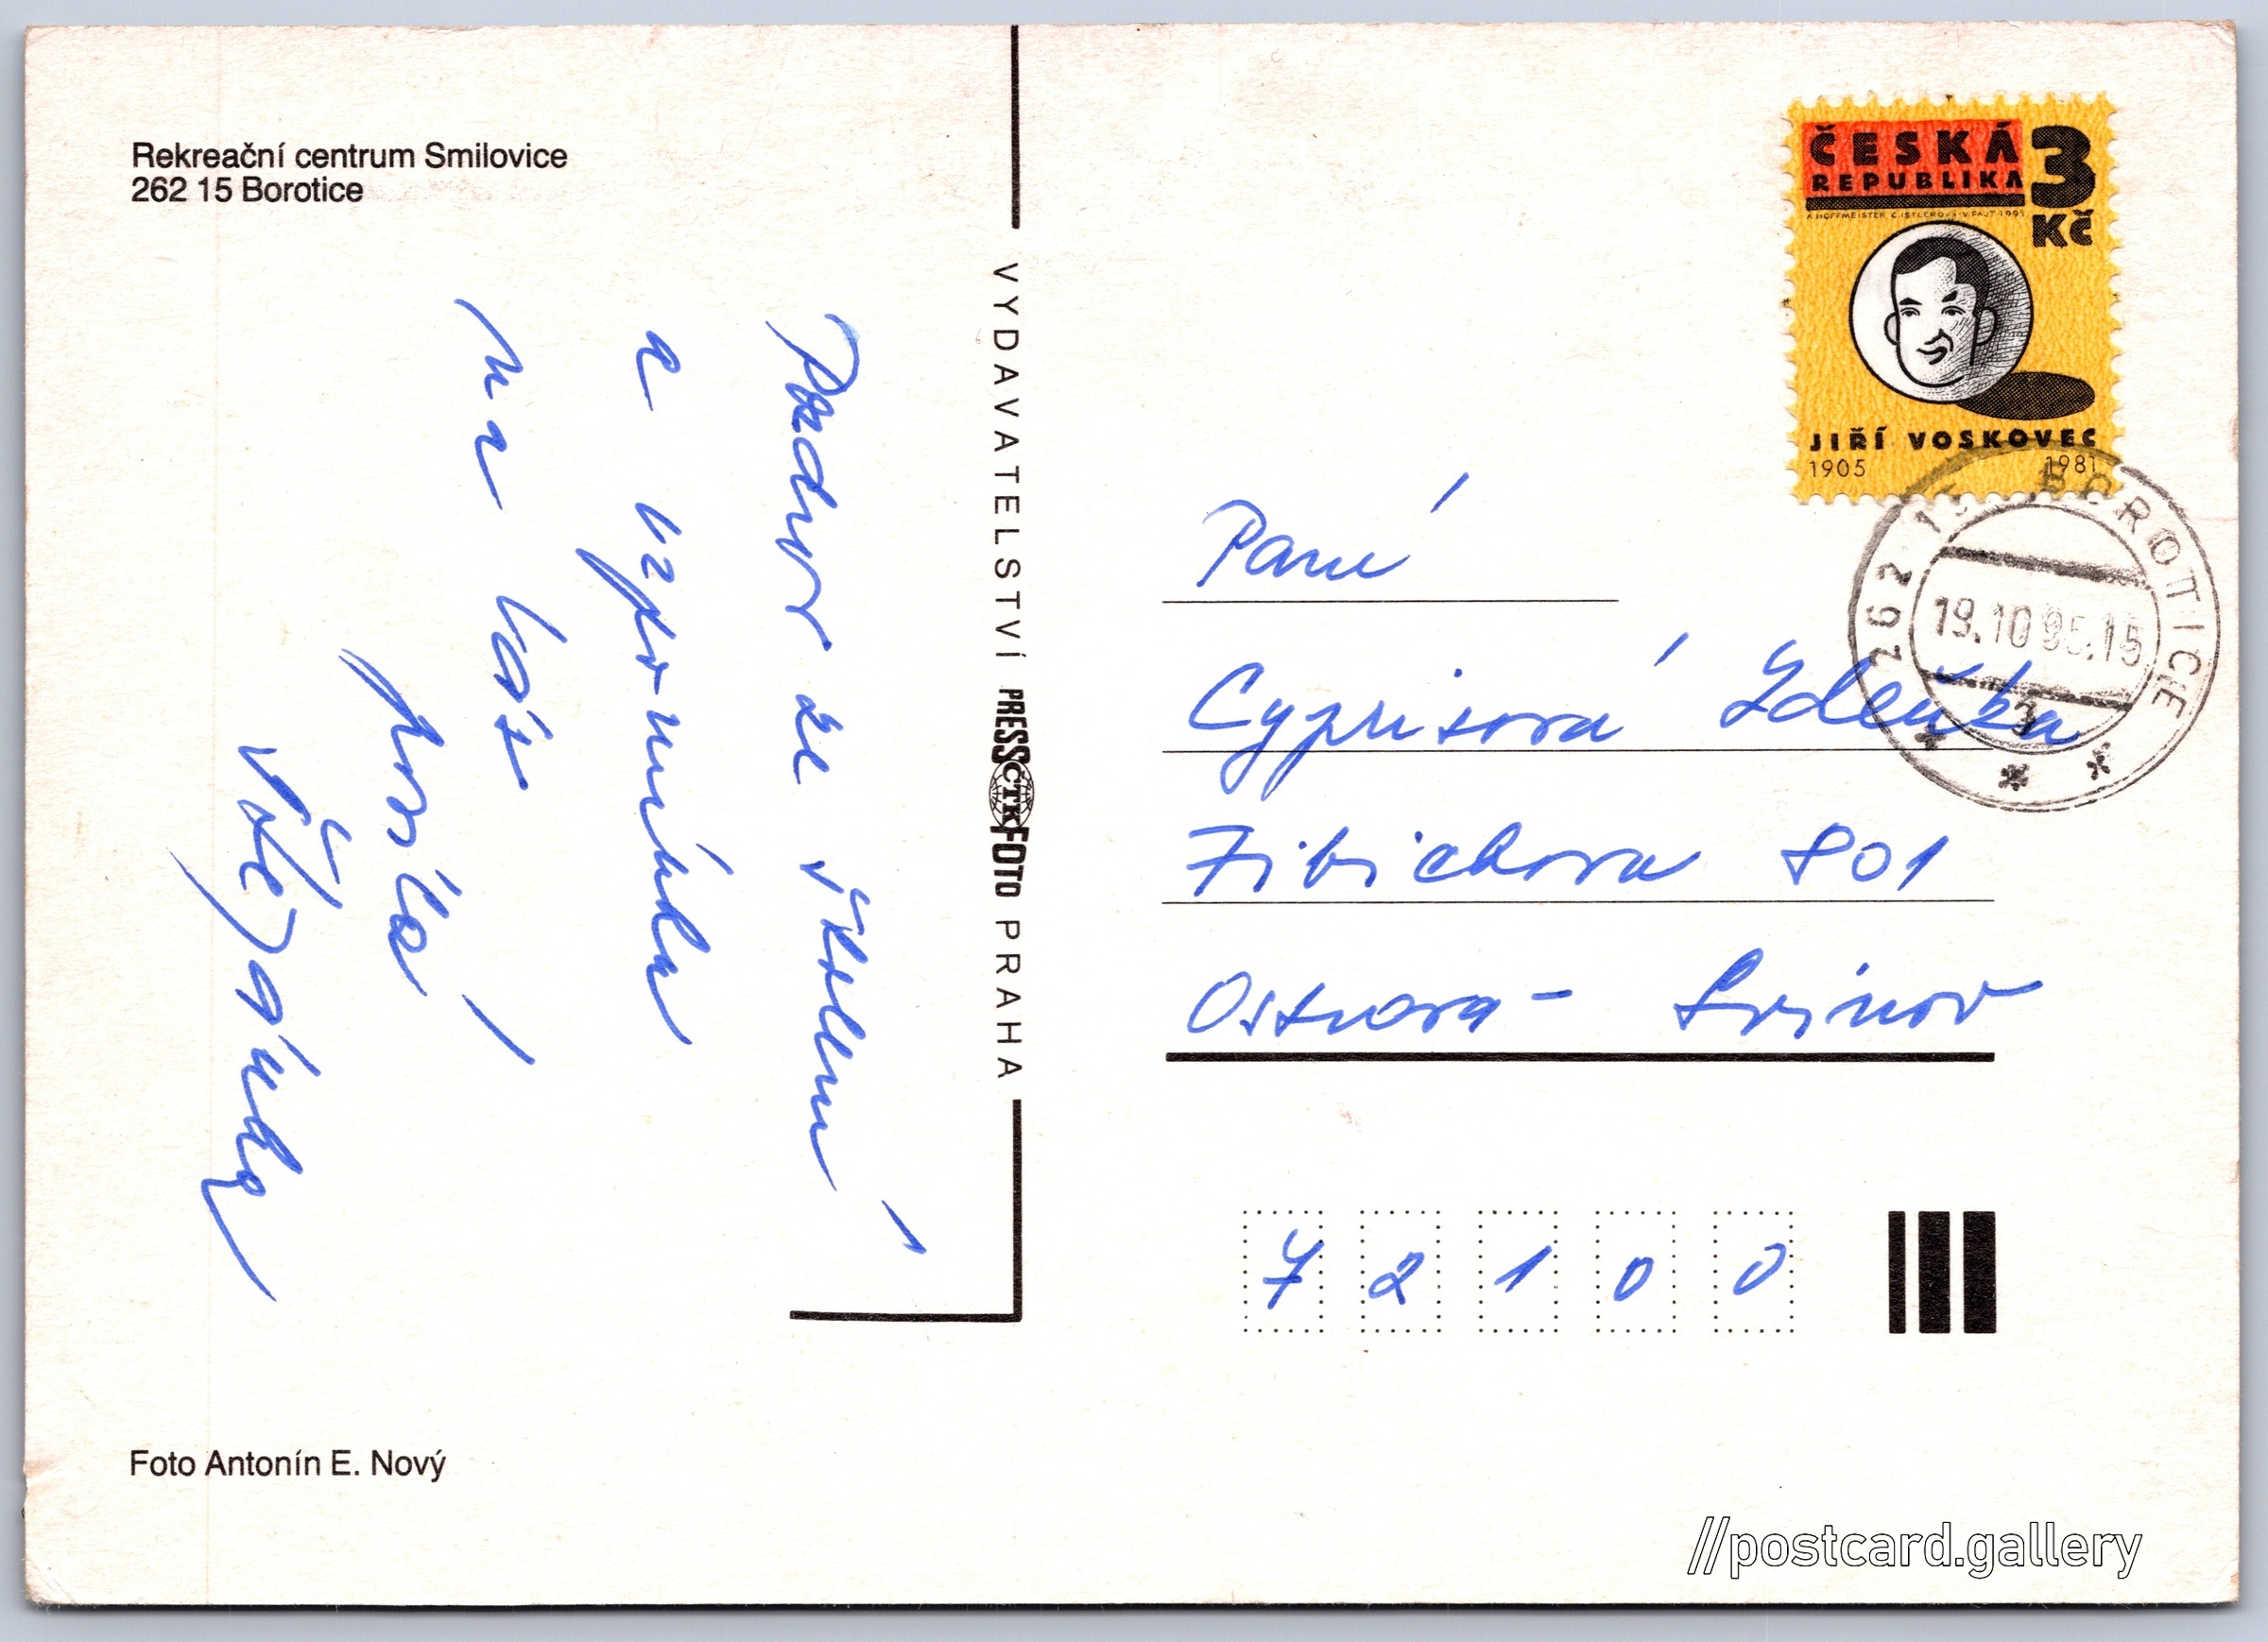 Rekreační centrum Smilovice
262 15 Borotice
Pozdrav ze školení
a vzpomínku
na Vás
posílá
Foto Antonín E. Nový
VYDAVATELSTVÍ PRESSČTKFOTO PRAHA
ČESKÁ
REPUBLIKA
3
Kč
A. HOFFMEISTER C. ISTLEROVÁ V. FAJT 1995
JIŘÍ VOSKOVEC
1905 1981
262 15 BOROTICE
19.10 95.15
3
Paní
Cyprisová Zdeňka
Fibichova 801
Ostrava- Svinov
7 2 1 0 0
//postcard.gallery